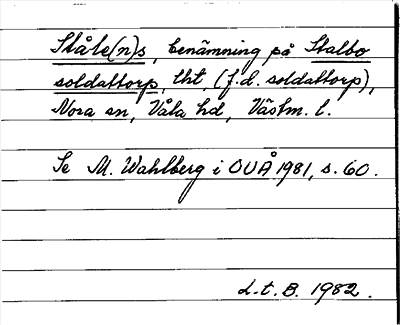 Ståle(n)s, benämning på Stalbo
soldattorp, lht, (f.d. soldattorp),
Nora sn, Våla hd, Västm. l.
Se M. Wahlberg i OUÅ 1981, s. 60.
L.t.B. 1982.